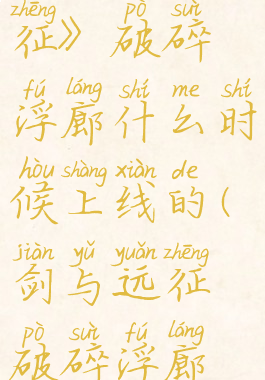 zhēng pò suì
征》 破碎
fú láng shí me shí
浮廊什么时
hòu shàng xiàn de
候上线的(
jiàn yǔ yuǎn zhēng
剑与远征
pò suì fú láng
破碎浮廊